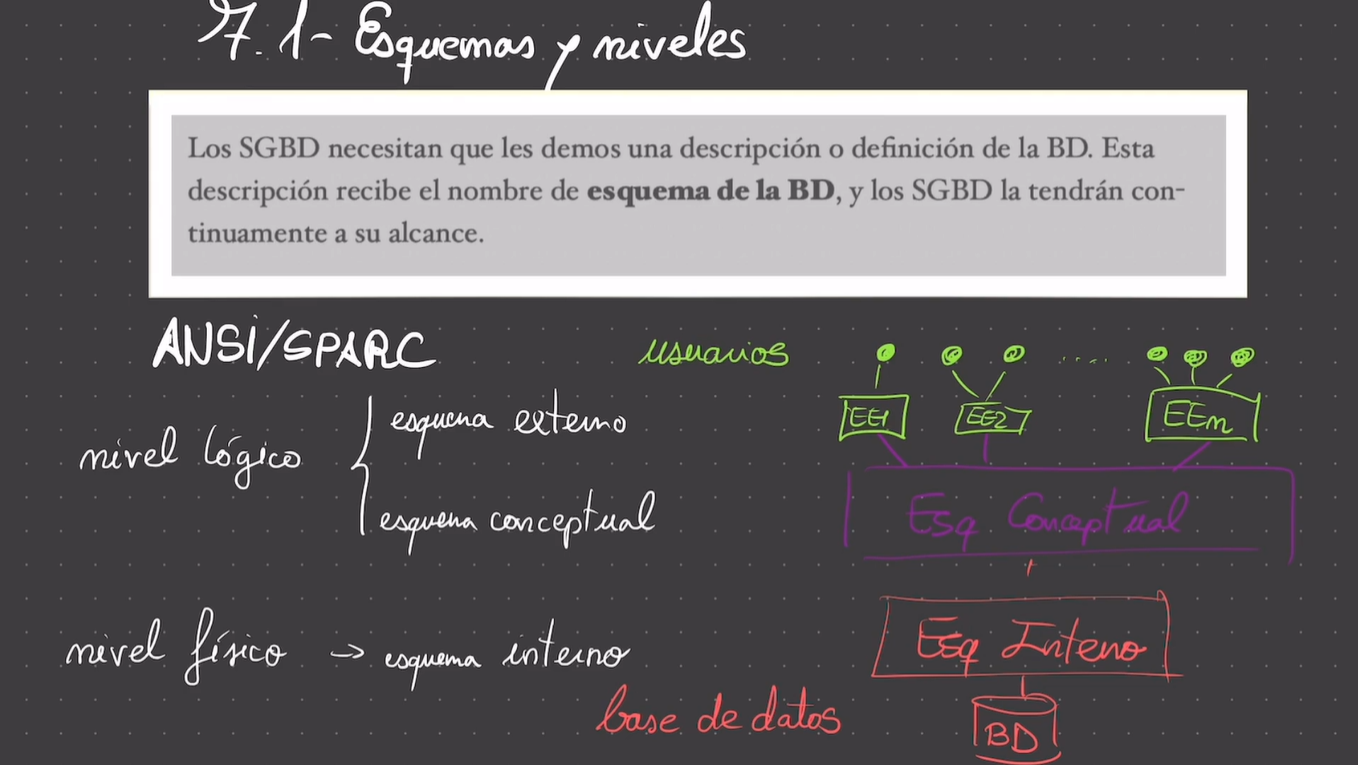 7.1- Esquemas y niveles
Los SGBD necesitan que les demos una descripción o definición de la BD. Esta
descripción recibe el nombre de esquema de la BD, y los SGBD la tendrán con-
tinuamente a su alcance.
ANSI/SPARC
usuarios
.....
nivel lógico
esquema externo
esquema conceptual
EE1 EE2 EEn
Esq Conceptual
nivel físico → esquema interno
Esq Interno
base de datos
BD